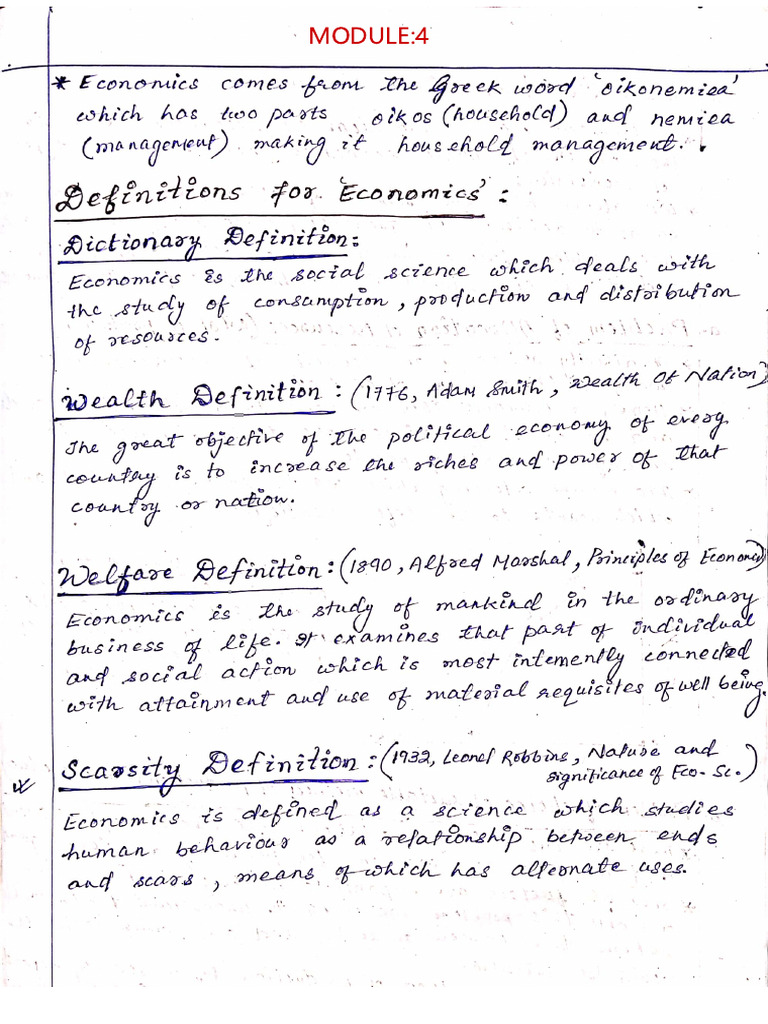 MODULE:4
* Economics comes from the Greek word 'oikonemiea'
which has two parts oikos (household) and nemiea
(management) making it household management.
Definitions for 'Economics':
Dictionary Definition:
Economics is the social science which deals with
the study of consumption, production and distribution
of resources.
Wealth Definition: (1776, Adam Smith, Wealth Of Nation)
The great objective of the political economy of every
country is to increase the riches and power of that
country or nation.
Welfare Definition: (1890, Alfred Marshal, Principles of Economics)
Economics is the study of mankind in the ordinary
business of life. It examines that part of individual
and social action which is most intemently connected
with attainment and use of material requisites of well being.
Scarsity Definition: (1932, Leonel Robbins, Nature and
significance of Eco. Sc.)
Economics is defined as a science which studies
human behaviour as a relationship between ends
and scars, means of which has alternate uses.